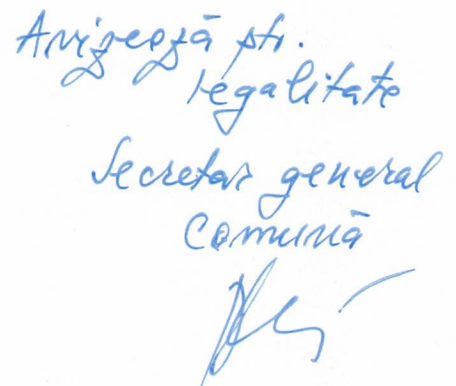 Avizează ptr.
legalitate
Secretar general
Comună